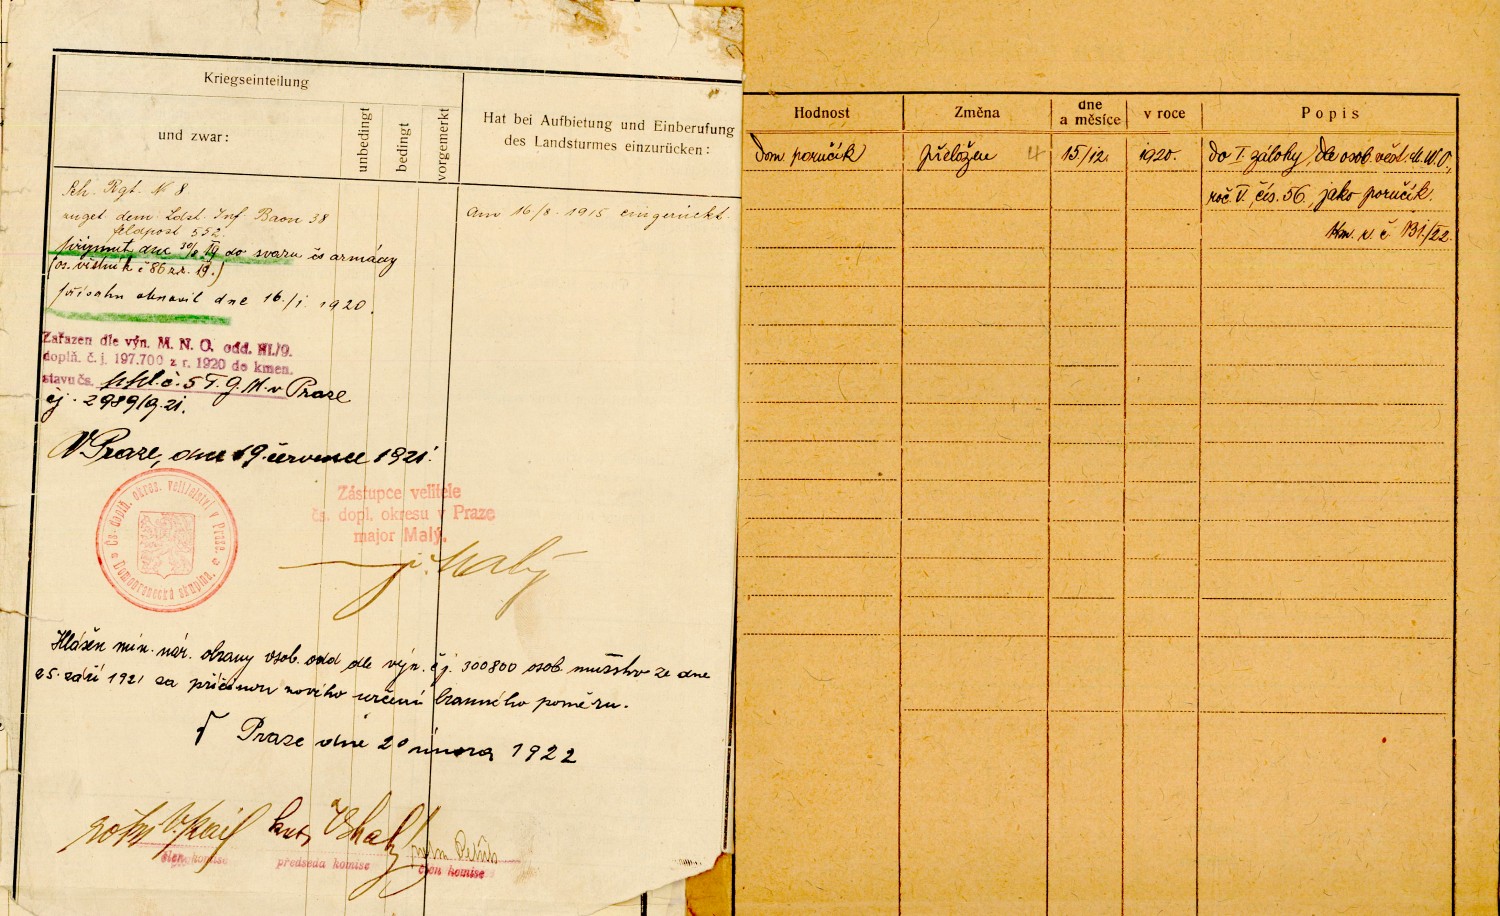 Kriegseinteilung
und zwar:
unbedingt
bedingt
vorgemerkt
Hat bei Aufbietung und Einberufung
des Landsturmes einzurücken:
Sch. Rgt. N 8
zuget dem Ldst. Inf. Baon 38
feldpost 552
am 16/8. 1915 eingerückt.
přijmut dne 30/6. 19 do svazu čs armády
(os. věstník č 86 z r. 19.)
přísahu obnovil dne 16./I. 1920.
Zařazen dle výn. M. N. O. odd. III./9.
doplň. č. j. 197.700 z r. 1920 do kmen.
stavu čs. ppl. č. 5 T. G. M. v Praze
čj. 2989/9. 21.
V Praze, dne 19. července 1921.
Čs. doplň. okres. velitelství v Praze.
Domobranecká skupina.
Zástupce velitele
čs. dopl. okresu v Praze
major Malý.
Malý
Hlášen min. nár. obrany osob. odd dle výn. čj. 300800 osob. mužstvo ze dne
25. září 1921 za příčinou nového určení branného poměru.
V Praze dne 20 února 1922
člen komise
předseda komise
člen komise
Hodnost
Změna
dne
a měsíce
v roce
Popis
Dom poručík
přeložen 4
15./12.
1920.
do I. zálohy dle osob. věst. M.N.O,
roč. V. čís. 56, jako poručík.
Km. v. č. 131./22.